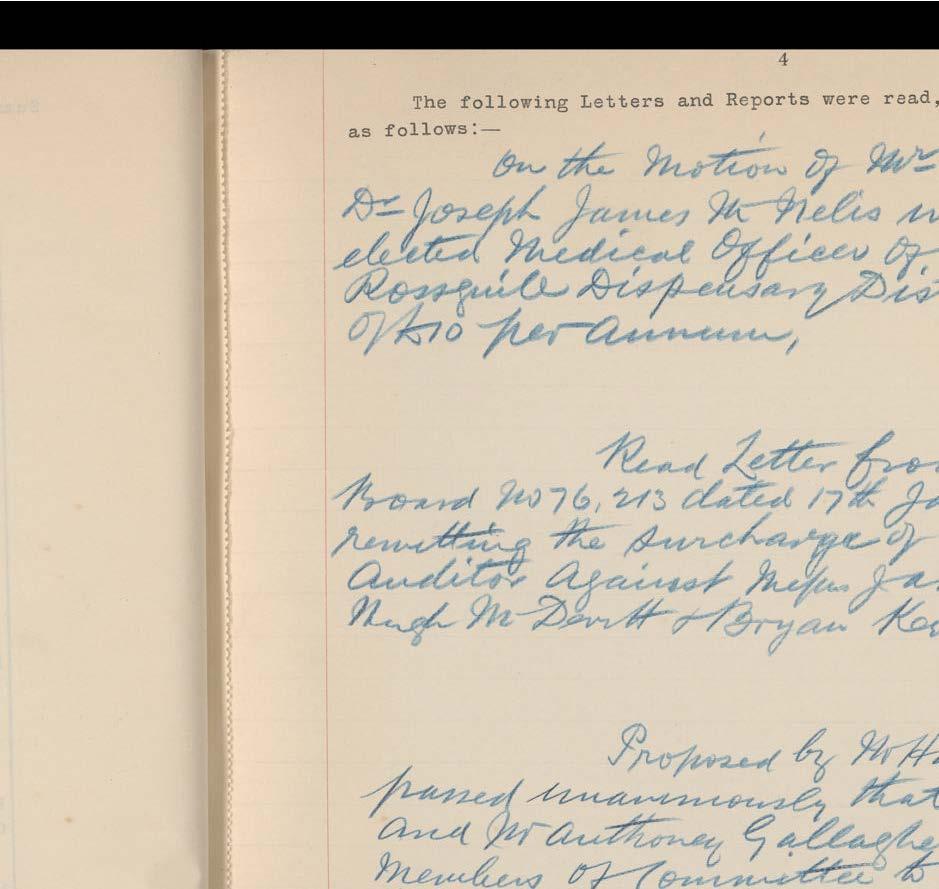 4
The following Letters and Reports were read,
as follows:—
On the Motion of Mr
Dr Joseph James Mc Nelis
elected Medical Officer Of
Rossguile Dispensary Dis
Of £10 per Annum,
Read Letter from
Board No 76,213 dated 17th Ja
remitting the surcharge of
Auditor Against Messrs Ja
Hugh Mc Devitt & Bryan Ke
Proposed by Mr H
passed unanimously that
And Mr Anthoney Gallaghe
Members Of Committee to